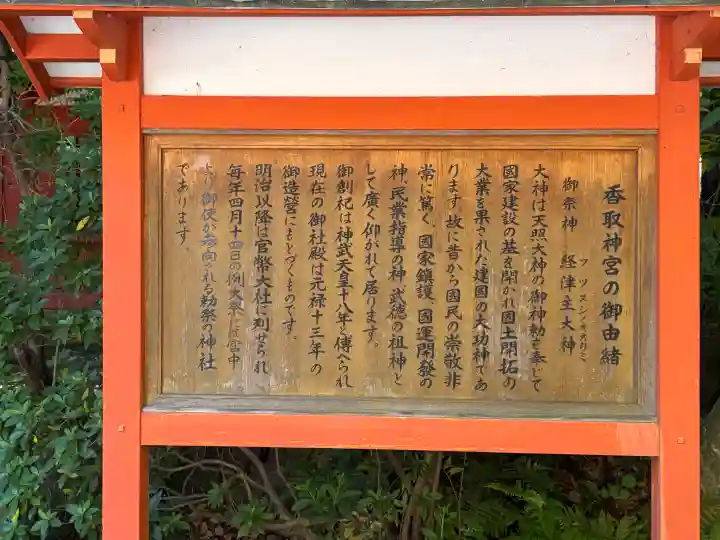 香取神宮の御由緒
御祭神 経津主大神
フツヌシノオオカミ
大神は天照大神の御神勅を奉じて
國家建設の基を開かれ國土開拓の
大業を果された建国の大功神であ
ります 故に昔から國民の崇敬非
常に篤く、國家鎮護、國運開發の
神、民業指導の神、武徳の祖神と
して廣く仰がれて居ります。
御創祀は神武天皇十八年と傳へられ
現在の御社殿は元禄十三年の
御造營にもとづくものです。
明治以降は官幣大社に列せられ
毎年四月十四日の例大祭には宮中
より御使が参向される勅祭の神社
であります。